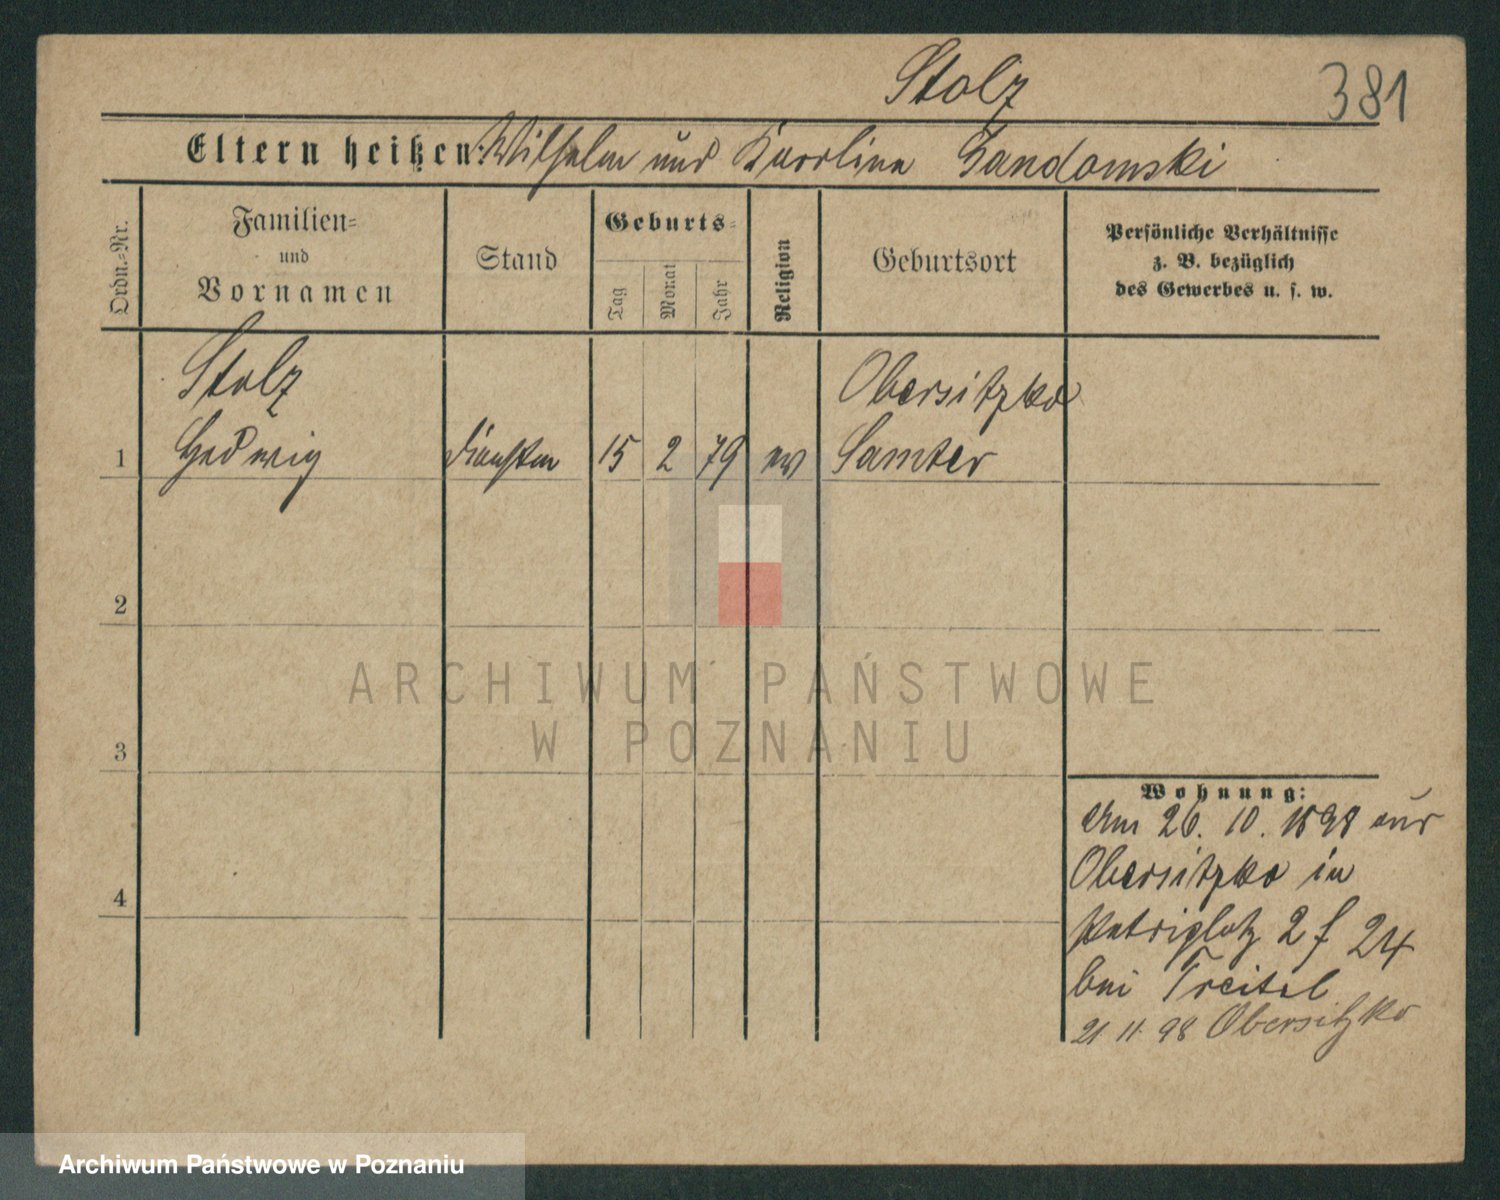 Stolz
381
Eltern heißen: Wilhelm und Karoline Sandomski
Ordn.-Nr.
Familien-
und
Vornamen
Stand
Geburts-
Tag
Monat
Jahr
Religion
Geburtsort
Persönliche Verhältnisse
z. B. bezüglich
des Gewerbes u. s. w.
Stolz
Obersitzko
1 Hedwig 15 2 79 ev Samter
2
ARCHIWUM PAŃSTWOWE
W POZNANIU
3
Wohnung:
Am 26. 10. 1898 aus
Obersitzko in
Petriplatz 2 f 24
bei Treitel
4
21 11 98 Obersitzko
Archiwum Państwowe w Poznaniu